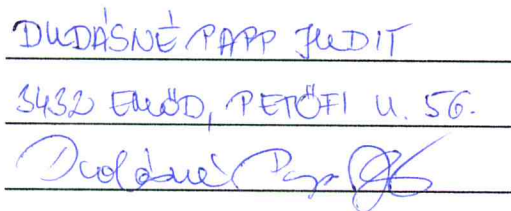 DUDÁSNÉ PAPP JUDIT
3432 EMŐD, PETŐFI U. 56.
Dudásné Papp